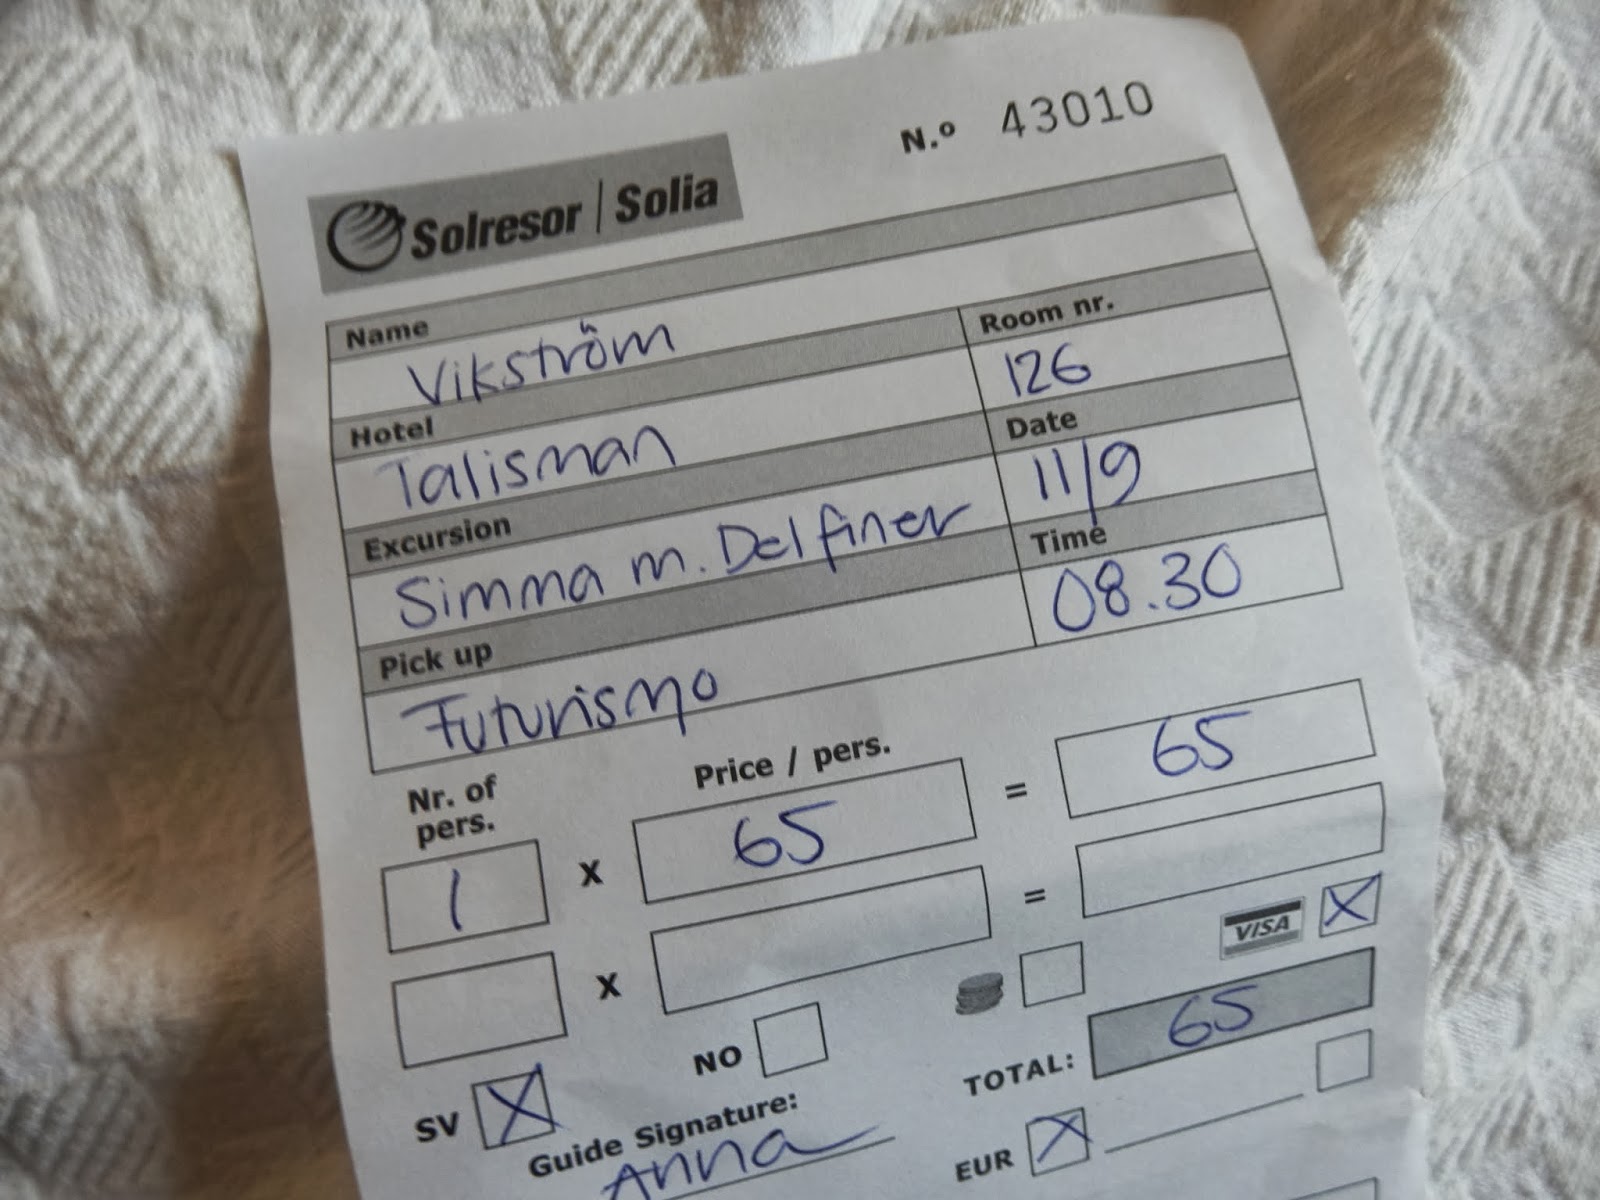 N.º 43010
Solresor | Solia
Name
Vikström
Hotel Room nr.
Talisman 126
Excursion Date
Simma m. Delfiner 11/9
Pick up Time
Futurismo 08.30
Nr. of pers. Price / pers.
1 x 65 = 65
x =
VISA X
SV X NO TOTAL: 65
Guide Signature: EUR X
Anna